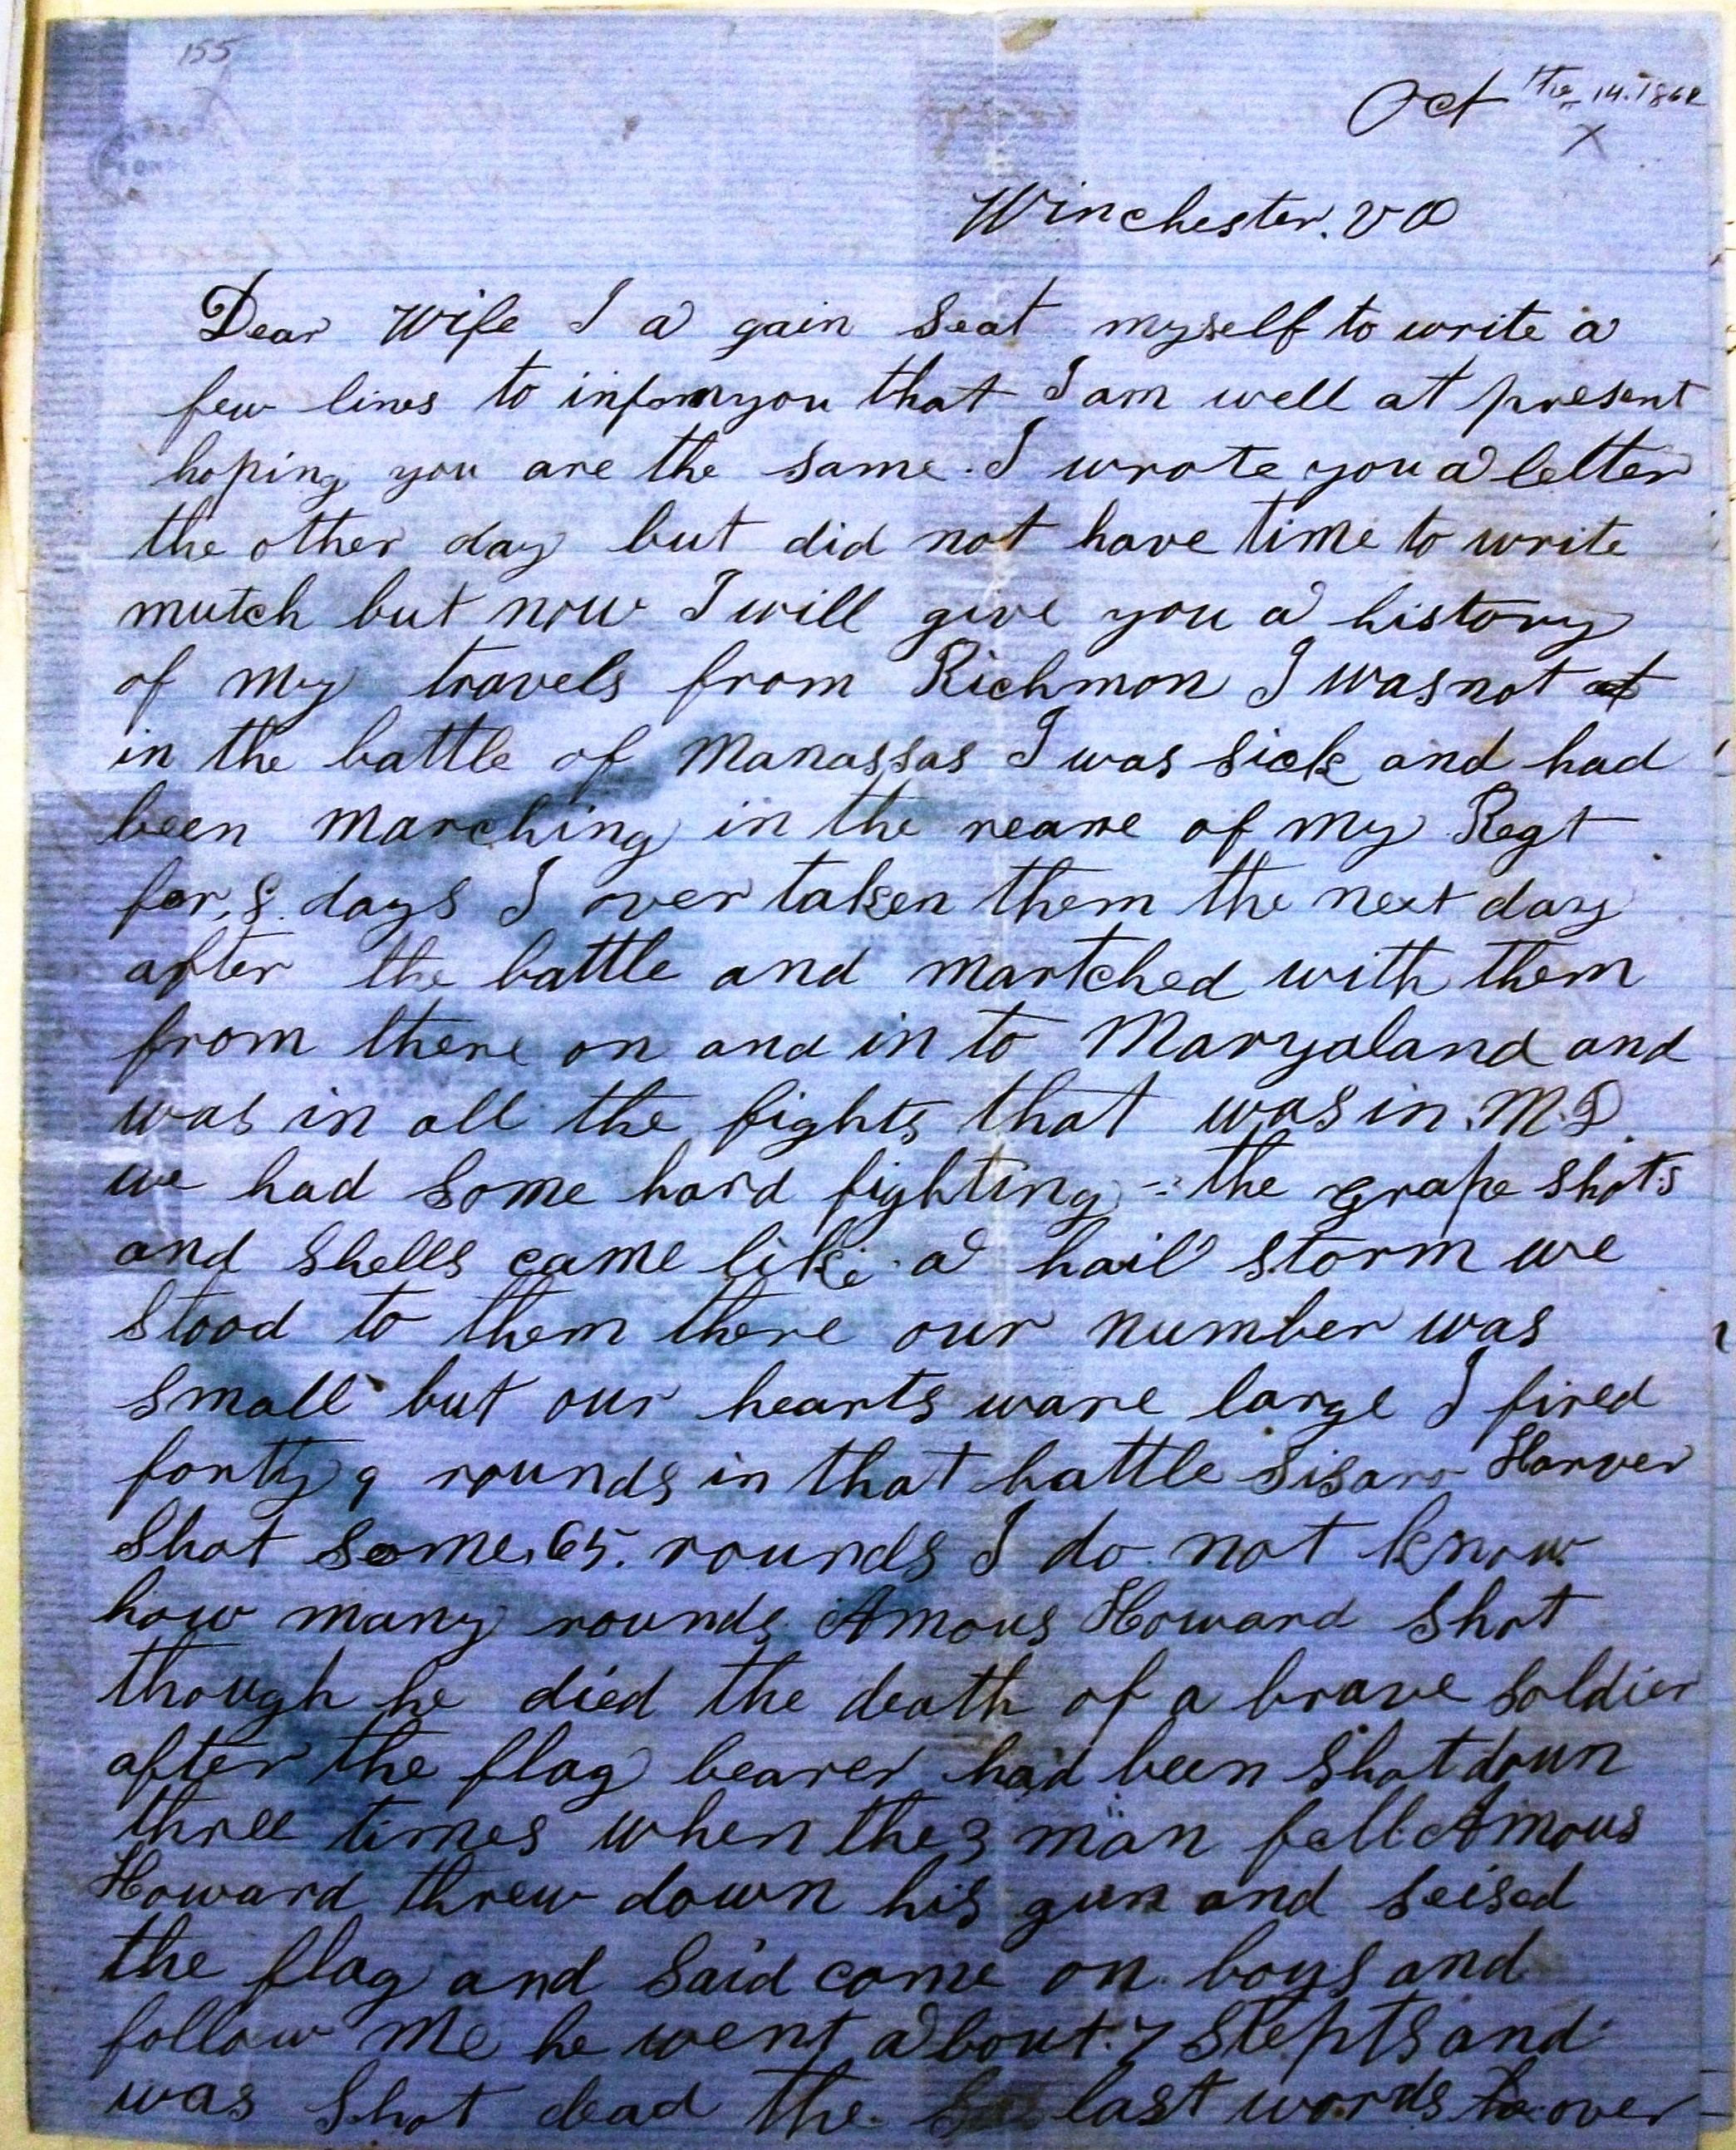 155
Oct the 14. 1862
Winchester. Va
Dear Wife I a gain Seat myself to write a
few lines to informyou that I am well at present
hoping you are the same. I wrote you a letter
the other day but did not have time to write
mutch but now I will give you a history
of my travels from Richmon I was not at
in the battle of Manassas I was sick and had
been marching in the reare of my Regt
for, 8. days I over taken them the next day
after the battle and martched with them
from there on and in to Maryaland and
was in all the fights that was in M.D.
we had some hard fighting - the grape shots
and shells came like a hail storm we
stood to them there our number was
small but our hearts ware large I fired
fortty 9 rounds in that battle Sisaro Harver
shot some, 65. rounds I do not know
how many rounds Amous Howard shot
though he died the death of a brave soldier
after the flag bearer had been shot down
three times when the 3 man fell Amous
Howard threw down his gun and seised
the flag and said come on boys and
follow me he went about. 7 stepts and
was shot dead the last words he over